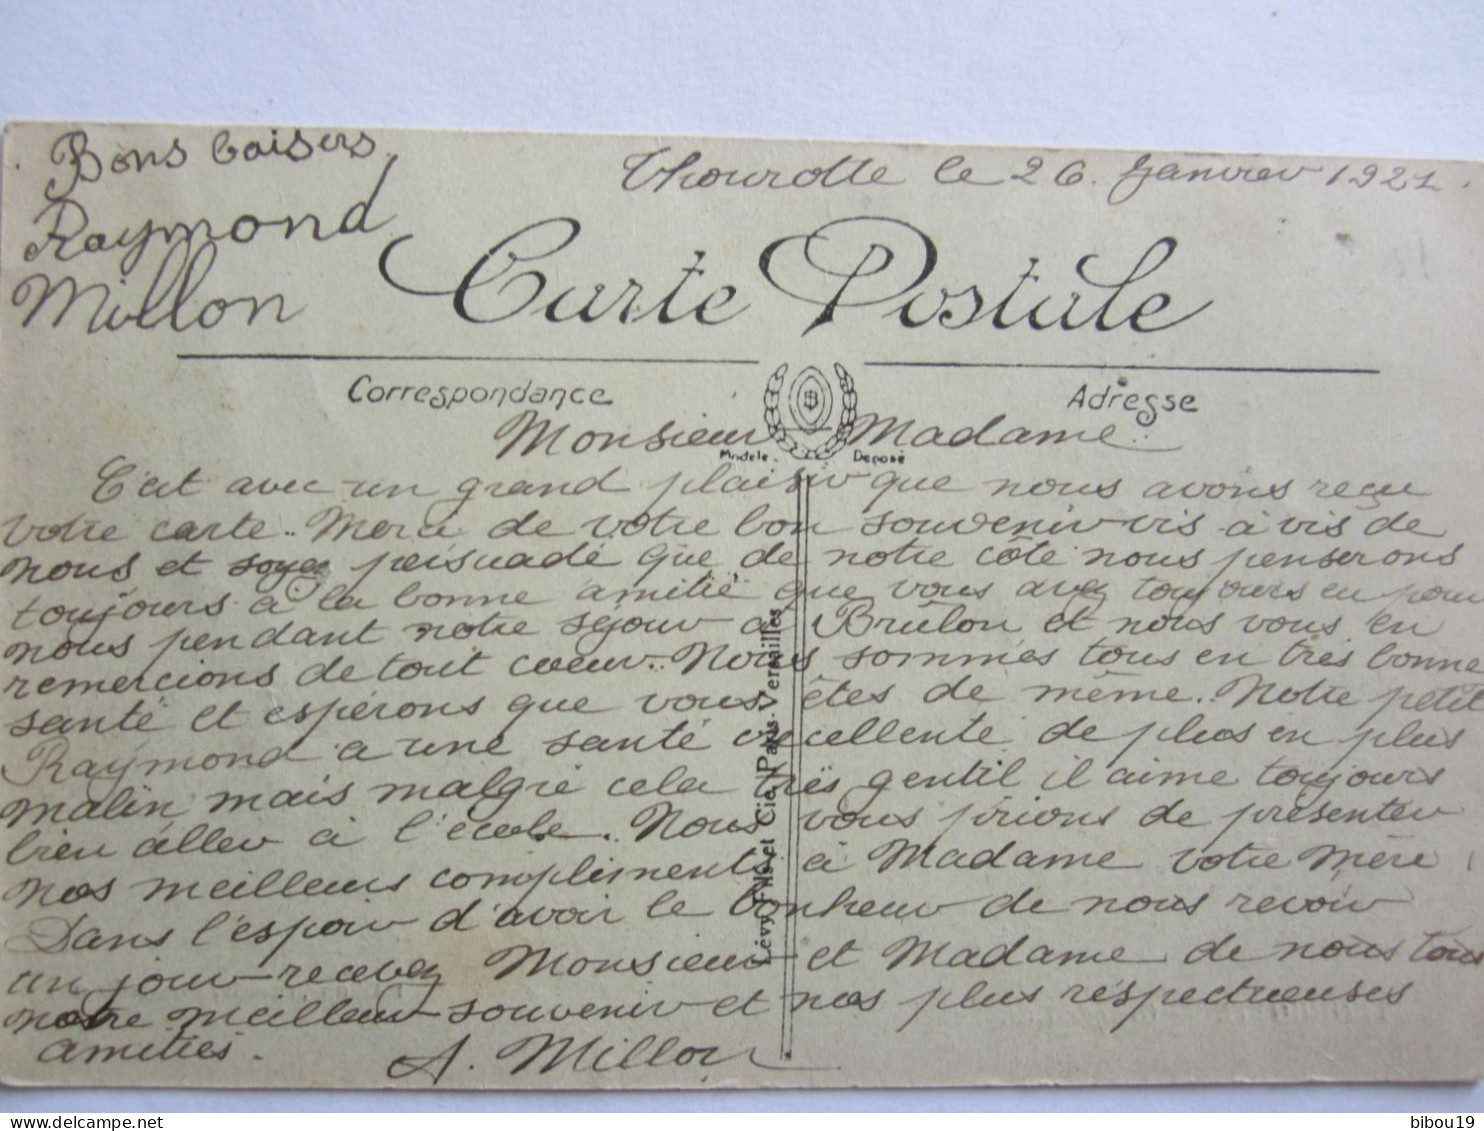 Bons baisers
Raymond
Millon
Thourotte le 26 Janvier 1921.
Carte Postale
Correspondance
Adresse
Modèle Déposé
Monsieur Madame
C'est avec un grand plaisir que nous avons reçu
votre carte. Merci de votre bon souvenir vis à vis de
nous et soyez persuadé que de notre côté nous penserons
toujours à la bonne amitié que vous avez toujours eu pour
nous pendant notre séjour à Brûlon et nous vous en
remercions de tout coeur. Nous sommes tous en très bonne
santé et espérons que vous êtes de même. Notre petit
Raymond a une santé excellente de plus en plus
malin mais malgré cela très gentil il aime toujours
bien aller à l'école. Nous vous prions de présenter
nos meilleurs compliments à Madame votre mère
Dans l'espoir d'avoir le bonheur de nous revoir
un jour recevez Monsieur et Madame de nous tous
notre meilleur souvenir et nos plus respectueuses
amitiés.
A. Millon
Lévy Fils et Cie, Paris-Versailles
delcampe.net
bibou19